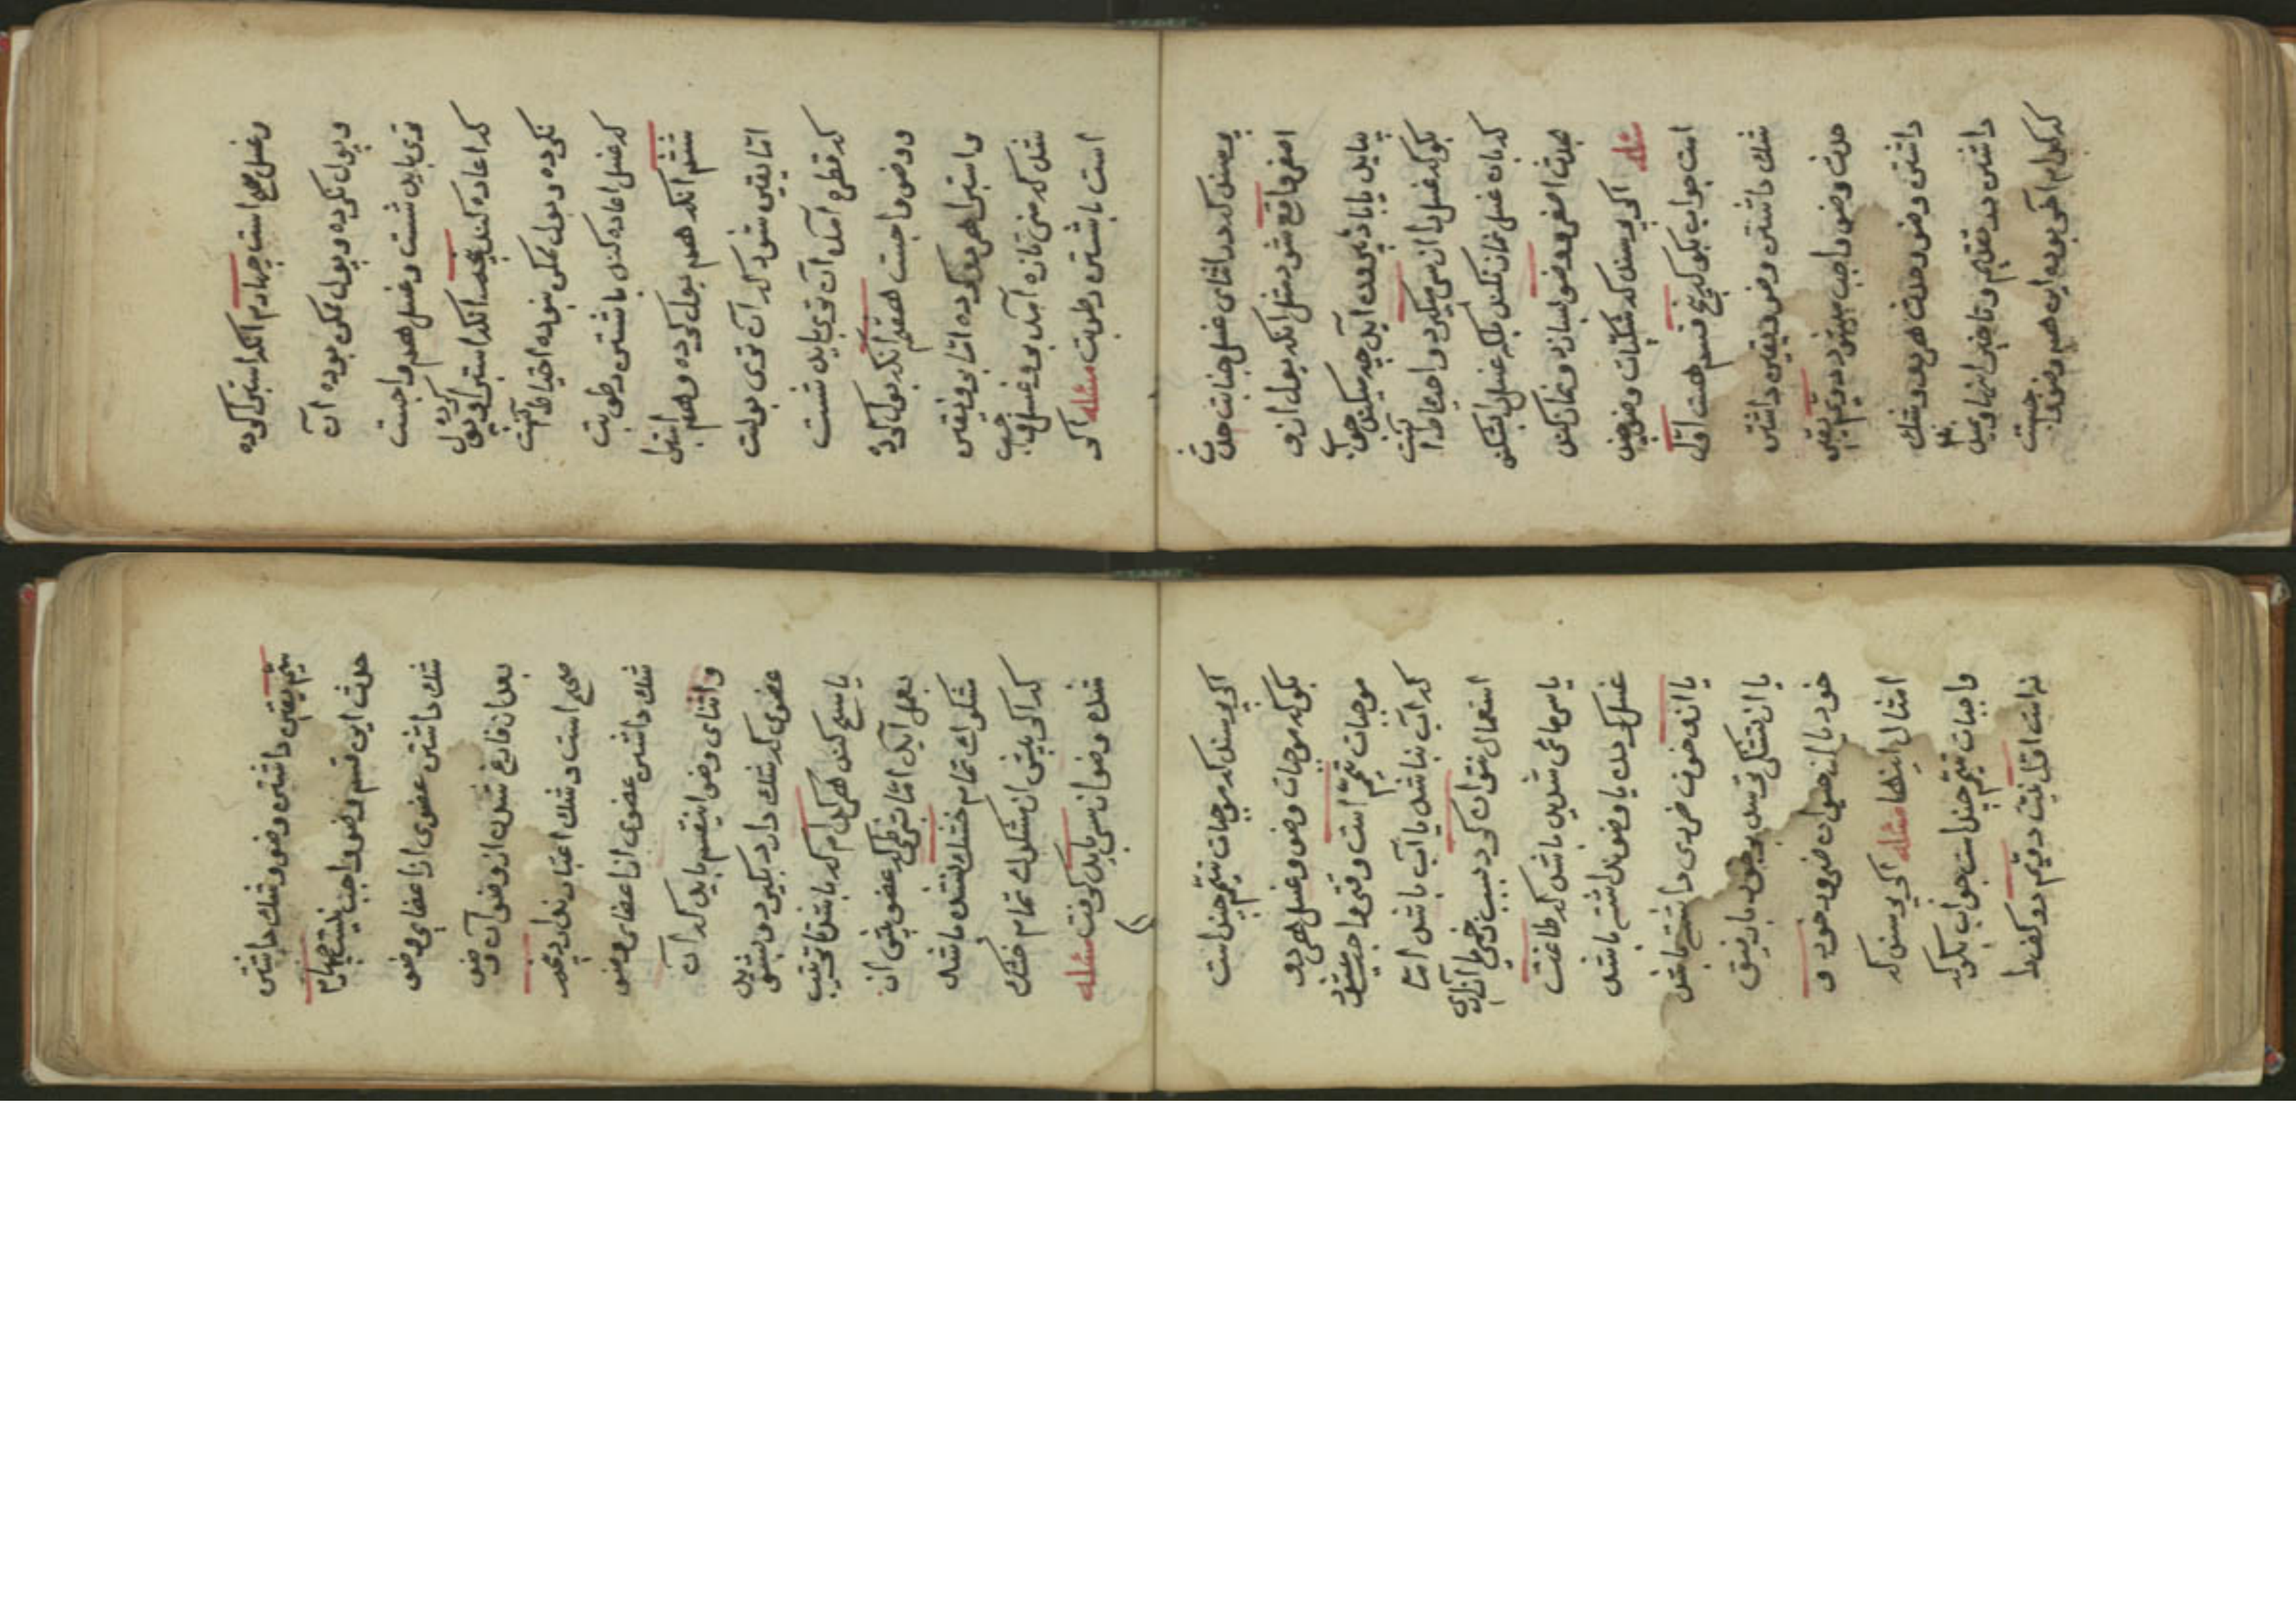 وغسل صحیح است چهارم انکه استبرا کرده
وبول نکرده وبول ممکن بوده آن
توی باید شست وغسل هم واجبست
که اعاده کند پنجم انکه استبرا کرده وبول
نکرده وبول ممکن نبوده احتیاط آنست
که غسل اعاده کند باشستن رطوبت
ششم انکه هم بول کرده وهم استبرا
اما یقین شود که آن توی بولست
که قطره آمد آن توی باید شست
ووضو واجبست هفتم انکه بول کرده
واستبرا هم کرده اما بر ویقین
شد که منی تازه آمد برو غسل واجب
است باشستن رطوبت مسئله اکر
پرسند که در اثنای غسل جنابت حدث
اصغر واقع شود مثل انکه بول ازو
بیاید یا باد بیرون آید چه میکند جواب
بکو که غسل را از سر میکیرد واحتیاط آنست
که بان غسل نماز نکند بلکه غسل را بشکند
بحدث اصغر ووضو بسازد ونماز کند
مسئله اکر پرسند که شکیات وضو چند
است جواب بکو که پنج قسم هست اول
شک داشتن وضو ویقین داشتن
حدث وضو واجب میشود دویم یقین
داشتن وضو وحدث هر دو وشک
داشتن در تقدیم وتاخیر اینها ونمیداند
که کدام آخر بوده این هم وضو واجبست
سیم یقین داشتن وضو وشک داشتن
حدث این قسم وضو واجب نیست چهارم
شک داشتن عضوی از اعضای وضو
بعد از فارغ شدن از وضو آن وضو
صحیح است وشک اعتبار ندارد پنجم
شک داشتن عضوی از اعضای وضو
در اثنای وضو اینقسم باید که آن
عضوی که شک دارد بکیرد وبشوید
یا مسح کند هر کدام که باشد تا ترتیب
بعمل آید اما بشرطی که عضو پیش از
مشکوک تمام خشک نشده باشد
که اکر پیش از مشکوک تمام خشک
شده وضو از سر باید کرفت مسئله
اکر پرسند که موجبات تیمم چند است
بکو که موجبات وضو وغسل هر دو
موجبات تیمم است وقتی واجب میشود
که آب نباشد یا آب باشد اما
استعمال نتوان کرد بسبب زخمی یا آزاری
یا سرمائی شدید باشد که طاقت
غسل کردن یا وضو نداشته باشد
یا از خوف ضرری داشته باشد
یا از تشنکی ترسد بر خود یا رفیق
خود یا از حیوان ضرور خود و
امثال اینها مسئله اکر پرسند که
واجبات تیمم چند است جواب بکو که
نه است اول نیت دویم دو کف را